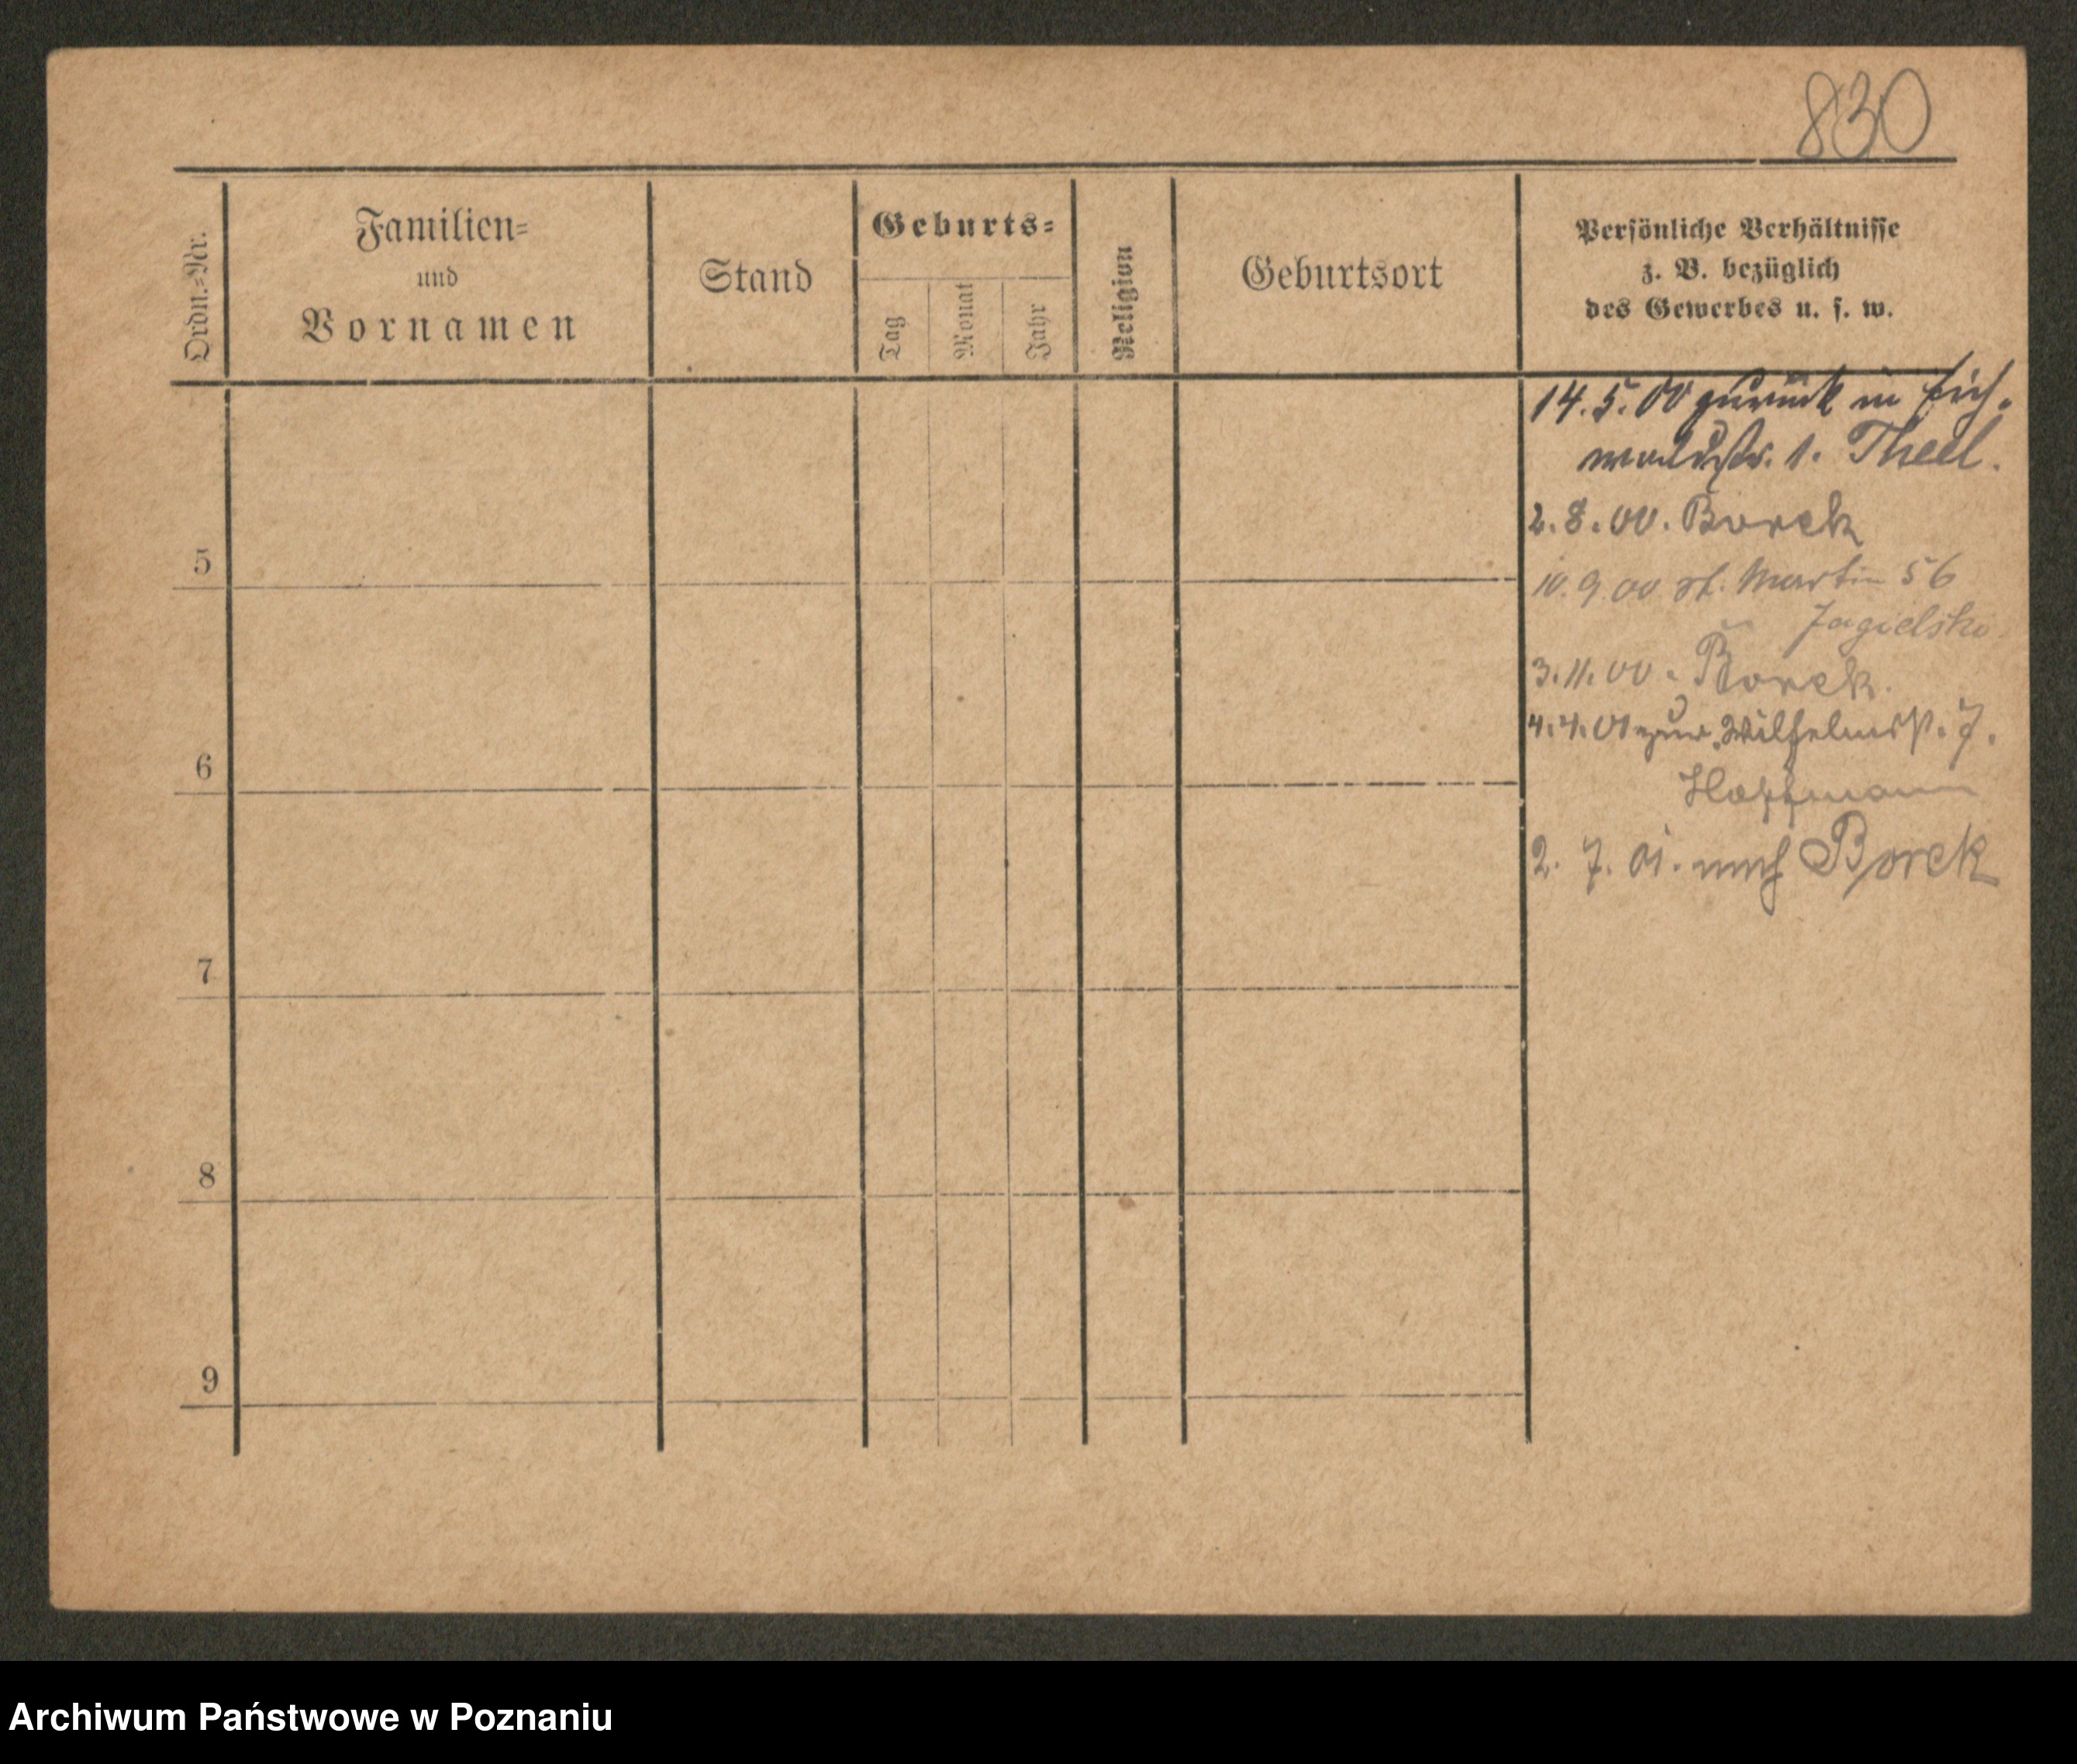 830
Ordn.-Nr.
Familien-
und
Vornamen
Stand
Geburts-
Tag
Monat
Jahr
Religion
Geburtsort
Persönliche Verhältnisse
z. B. bezüglich
des Gewerbes u. s. w.
14.5.00 zurück in Eich-
waldstr. 1. Theel.
2.8.00. Borek
5
10.9.00 St. Martin 56
Jagielski
3.11.00. Borek.
4.4.01 zur. Wilhelmspl. 7.
6
Hoffmann
2. 7. 01. nach Borek
7
8
9
Archiwum Państwowe w Poznaniu